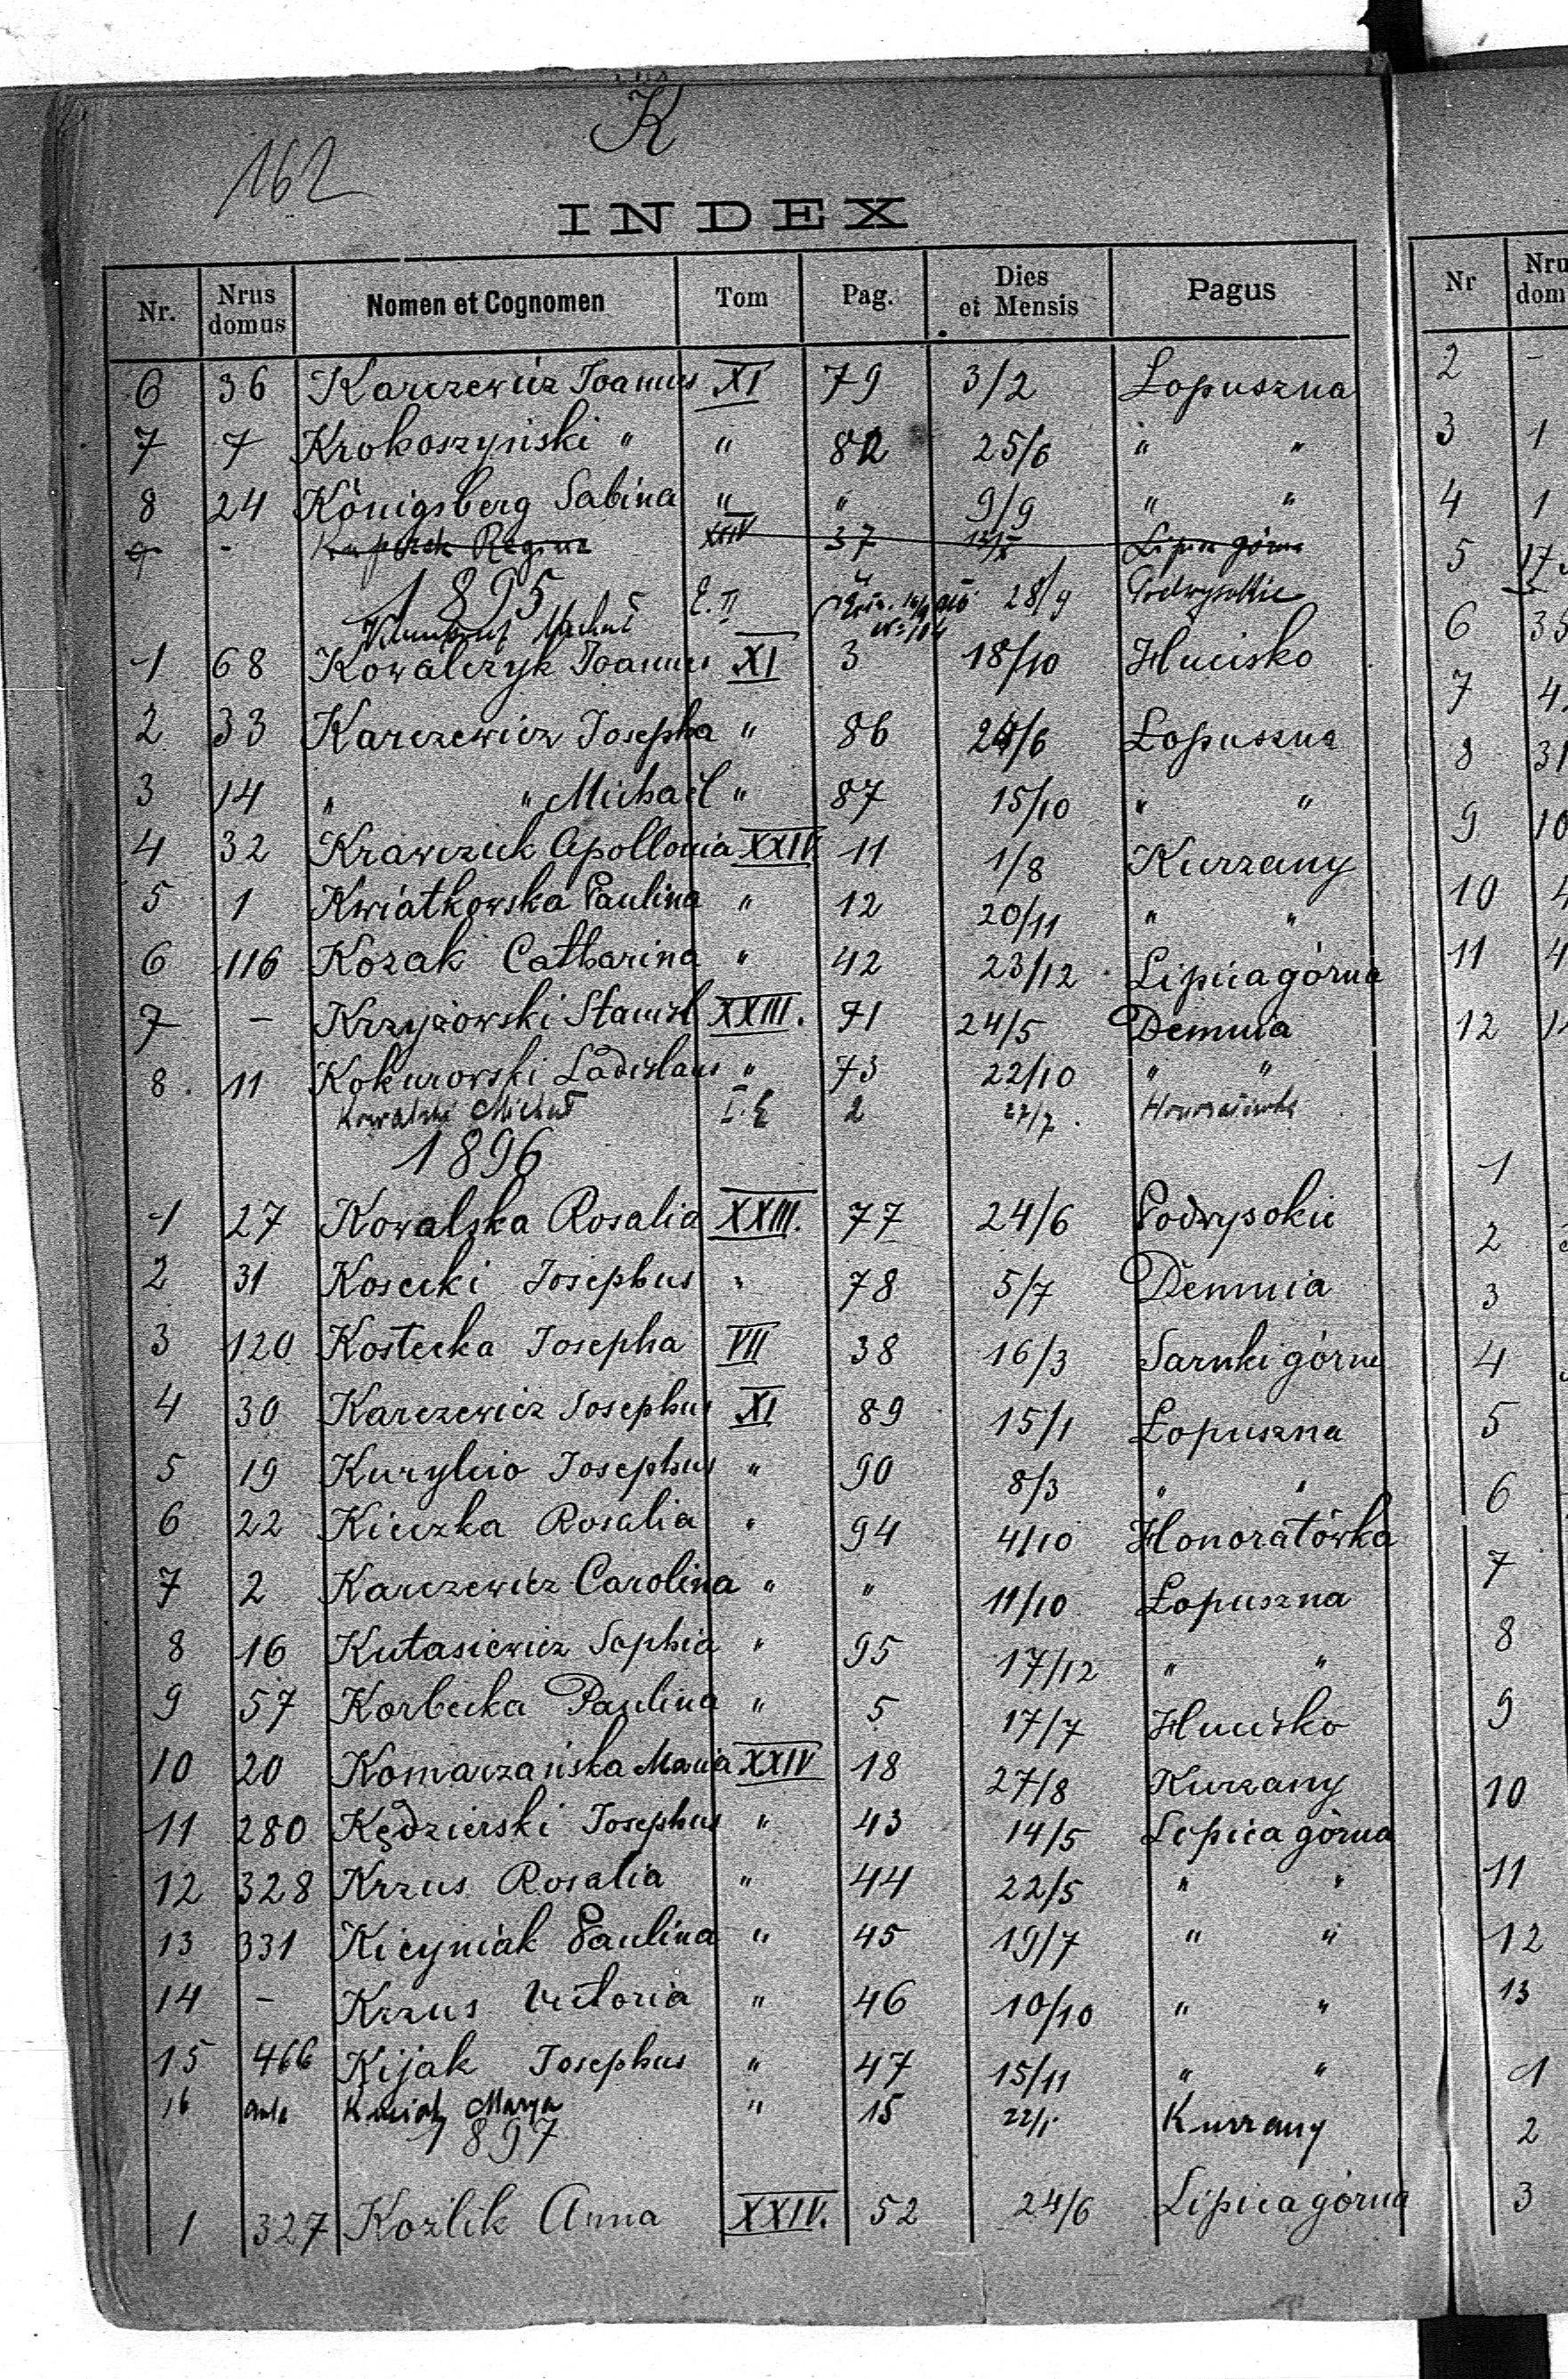 K
162
INDEX
Nr. Nrus domus Nomen et Cognomen Tom Pag. Dies et Mensis Pagus
6 36 Karczewicz Joannes XI 79 3/2 Łopuszna
7 7 Krokoszyński " " 82 25/6 " "
8 24 Königsberg Sabina " " 9/9 " "
9 - Regina XXIV 37 Lipica górna
1895 E. II 28/9 Podwysokie
1 68 Kowalczyk Joannes XI 3 18/10 Hucisko
2 33 Karczewicz Josepha " 86 /6 Łopuszna
3 14 " " Michaël " 87 15/10 " "
4 32 Krawczuk Apollonia XXIV. 11 1/8 Kurzany
5 1 Kwiatkowska Paulina " 12 20/11 " "
6 116 Kozak Catharina " 42 23/12 Lipica górna
7 - Krzyżowski Stanisl XXIII. 71 24/5 Demnia
8. 11 Kokurowski Ladislaus " 73 22/10 " "
Kowalski Michał I. E 2 27/7. Honoratówka
1896
1 27 Kowalska Rosalia XXIII. 77 24/6 Podwysokie
2 31 Kosecki Josephus " 78 5/7 Demnia
3 120 Kostecka Josepha VII 38 16/3 Sarnki górne
4 30 Karczewicz Josephus XI 89 15/1 Łopuszna
5 19 Kuryłcio Josephus " 90 8/3 " "
6 22 Kieczka Rosalia " 94 4/10 Honoratówka
7 2 Karczewicz Carolina " " 11/10 Łopuszna
8 16 Kutasiewicz Sophia " 95 17/12 " "
9 57 Korbecka Paulina " 5 17/7 Hucisko
10 20 Komarzańska Maria XXIV 18 27/8 Kurzany
11 280 Kędzierski Josephus " 43 14/5 Lipica górna
12 328 Krzus Rosalia " 44 22/5 " "
13 331 Kicyniak Paulina " 45 19/7 " "
14 - Krzus Victoria " 46 10/10 " "
15 466 Kijak Josephus " 47 15/11 " "
16 Marya " 15 22/1. Kurzany
1897
1 327 Koźlik Anna XXIV. 52 24/6 Lipica górna
Nr
2 -
3 1
4 1
5
6
7
8 31
9
10
11
12
1
2
3
4
5
6
7
8
9
10
11
12
13
1
2
3